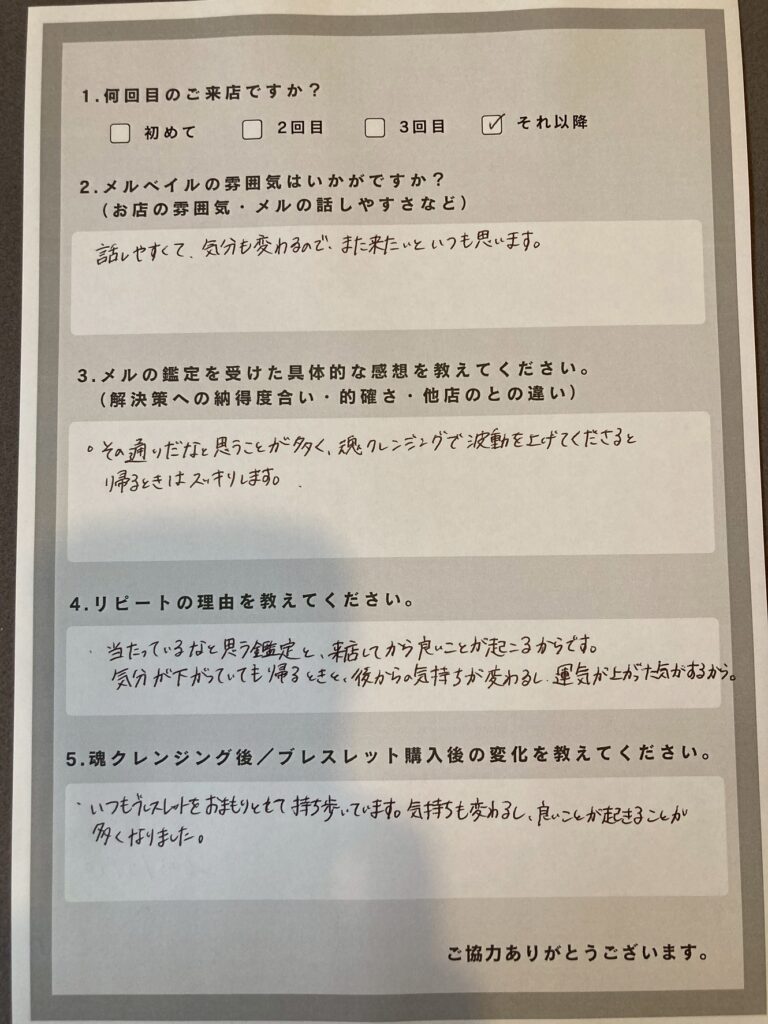 1.何回目のご来店ですか？
初めて 2回目 3回目 それ以降
2.メルベイルの雰囲気はいかがですか？
（お店の雰囲気・メルの話しやすさなど）
話しやすくて、気分も変わるので、また来たいといつも思います。
3.メルの鑑定を受けた具体的な感想を教えてください。
（解決策への納得度合い・的確さ・他店のとの違い）
。その通りだなと思うことが多く、魂クレンジングで波動を上げてくださると
帰るときはスッキリします。
4.リピートの理由を教えてください。
・当たっているなと思う鑑定と、来店してから良いことが起こるからです。
気分が下がっていても帰るときと、後からの気持ちが変わるし、運気が上がった気がするから。
5.魂クレンジング後／ブレスレット購入後の変化を教えてください。
・いつもブレスレットをおまもりとして持ち歩いています。気持ちも変わるし、良いことが起きることが
多くなりました。
ご協力ありがとうございます。